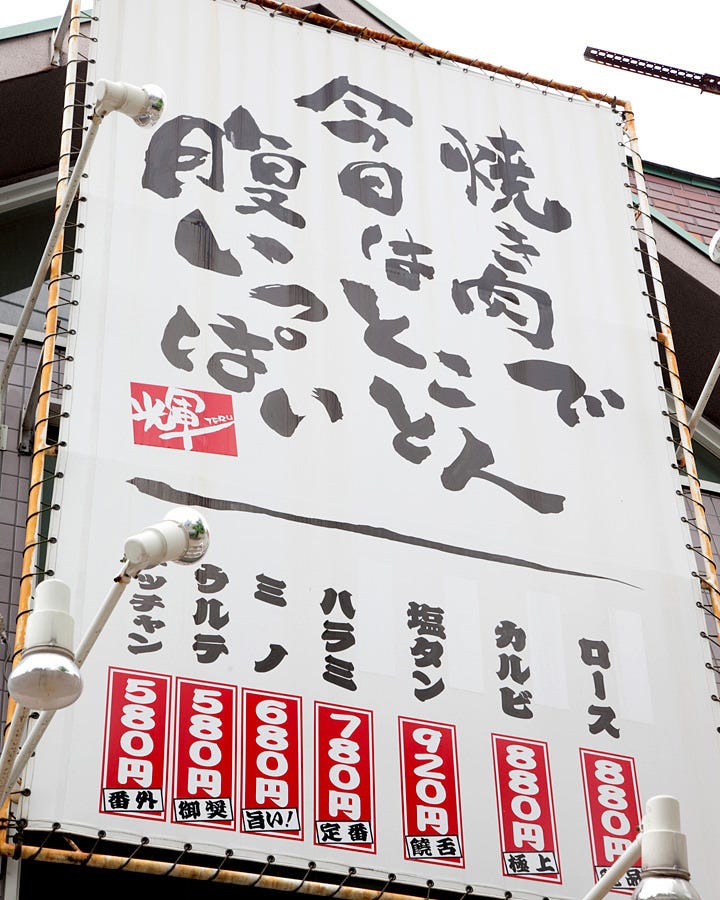 焼き肉で
今日はとことん
腹いっぱい
輝
TERU
ロース
880円
カルビ
880円
極上
塩タン
920円
饒舌
ハラミ
780円
定番
ミノ
680円
旨い!
ウルテ
580円
御奨
ッチャン
580円
番外